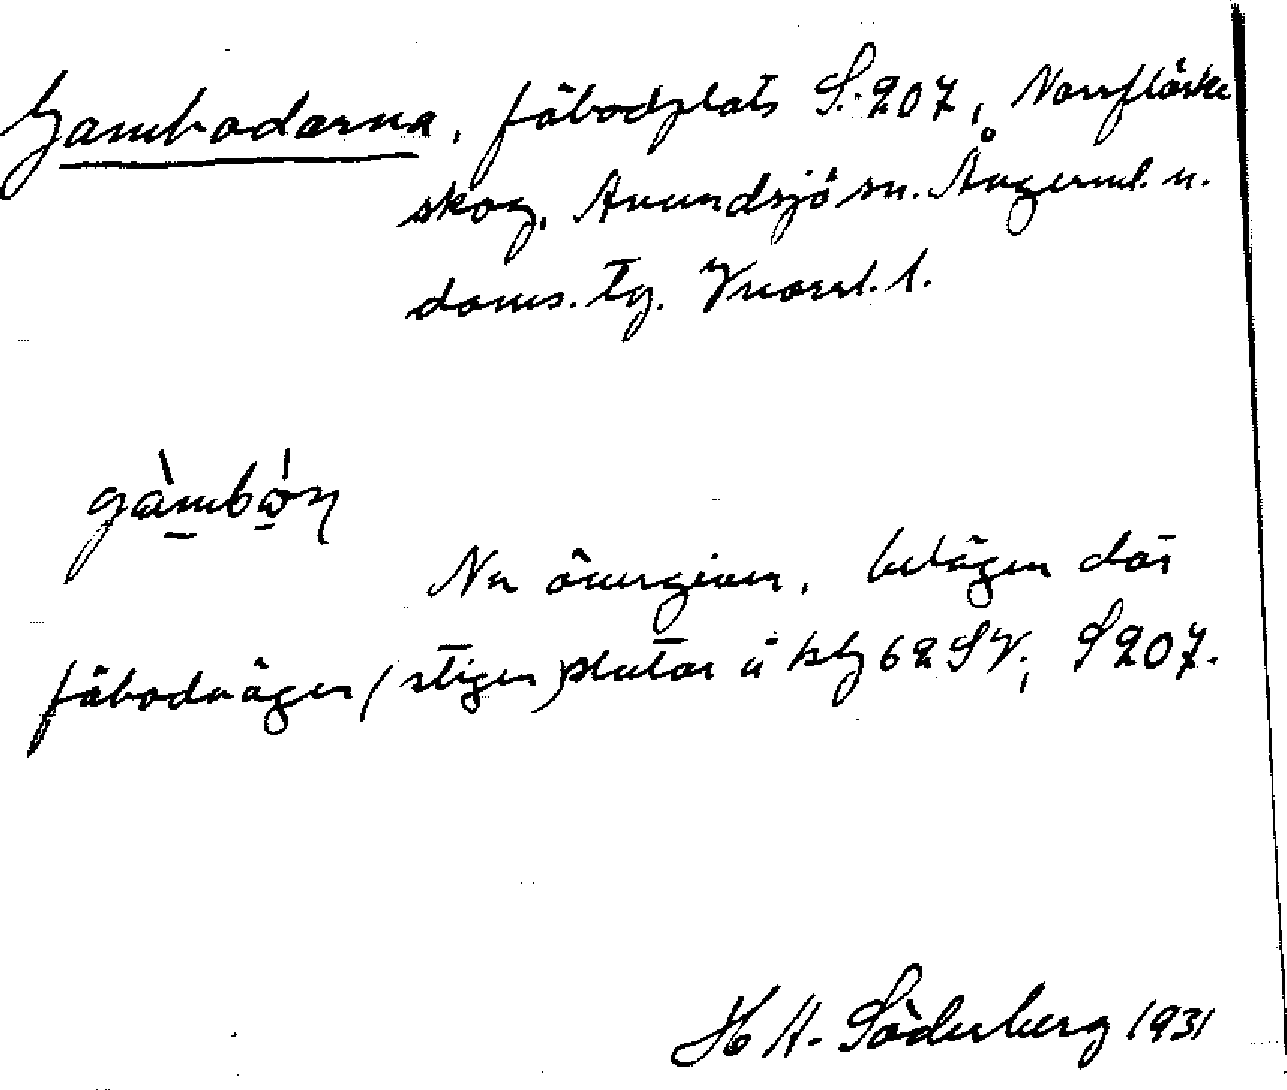 Gambodarna, fäbodplats S. 207, Norrflärke
skog, Anundsjö sn. Ångerml. n.
doms. tg. Vnorrl. l.
gàmbó̱n
Nu övergiven, belägen där
fäbodvägen (stigen) slutar å kbl 62 SV, S 207.
H A. Söderberg 1931